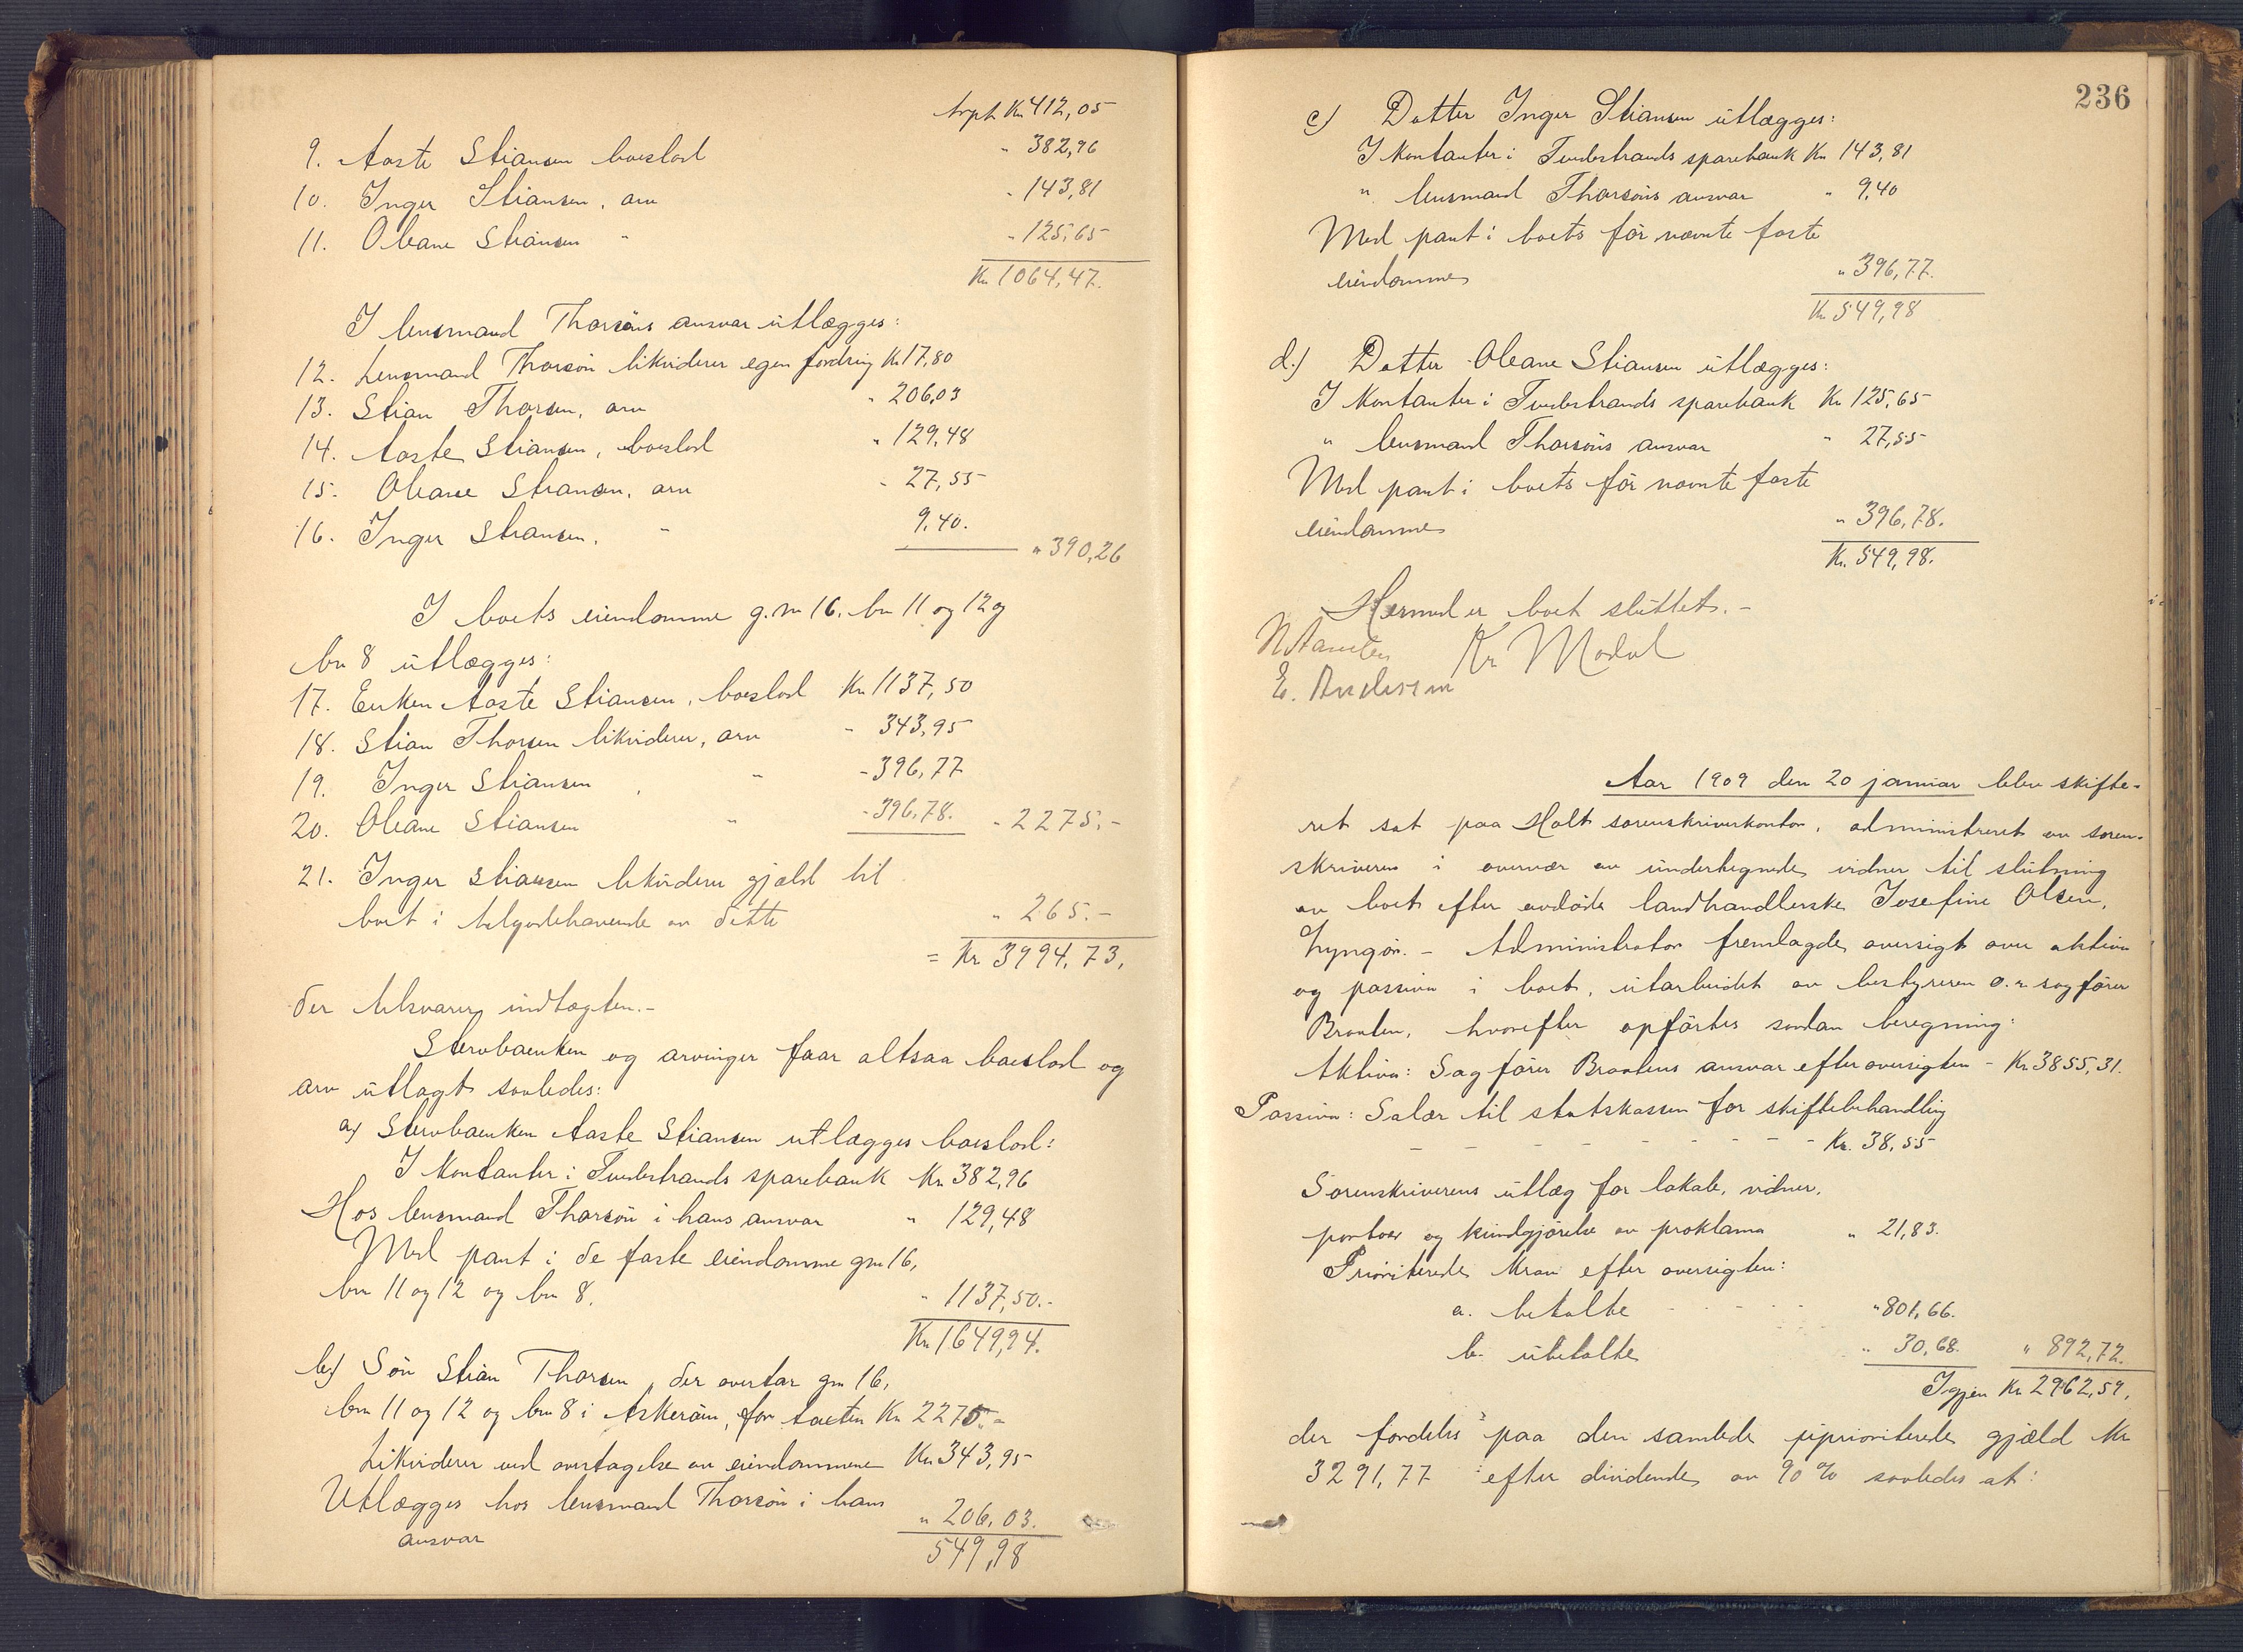 trpt Kr 412,05
9. Aaste Stiansen boeslod " 382,96
10. Inger Stiansen, arv " 143,81
11. Oleane Stiansen " - 125,65
Kr. 1064,47.
I lensmand Thorsöns ansvar utlægges:
12. Lensmand Thorsön likviderer egen fordring Kr 17,80
13. Stian Thorsen, arv " 206,03
14. Aaste Stiansen, boeslod " 129,48
15. Oleane Stiansen, arv " 27,55
16. Inger Stiansen, " 9,40.
" 390,26
I boets eiendomme g.nr 16. bn 11 og 12 og
bn 8 utlægges:
17. Enken Aaste Stiansen, boeslod Kr 1137,50
18. Stian Thorsen likviderer, arv - 343,95
19. Inger Stiansen, " - 396,77
20. Oleane Stiansen " - 396,78. - 2275,-
21. Inger Stiansen likviderer gjæld til
boet i tilgodehavende av dette " 265.-
= Kr 3994,73,
der tilsvarer indtægten.-
Stervboenken og arvinger faar altsaa boeslod og
arv utlagt saaledes:
a) Stervboenken Aaste Stiansen utlægges boeslod:
I Kontanter i Tvedestrands sparebank Kr 382,96
Hos lensmand Thorsön i hans ansvar " 129,48
Med pant i de faste eiendomme gnr 16,
bn 11 og 12 og bn 8. " 1137,50.-
Kr 1649,94.
b) Sön Stian Thorsen, der overtar gnr 16,
bn 11 og 12 og bn 8 i Askeröen, for taxten Kr 2275.-
Likviderer ved overtagelse av eiendommene Kr 343,95
Utlægges hos lensmand Thorsön i hans
ansvar " 206,03.
549,98
236
c) Datter Inger Stiansen utlægges:
I Kontanter i Tvedestrands sparebank Kr 143,81
" lensmand Thorsöns ansvar " 9,40
Med pant i boetsför nævnte faste
eiendomme " 396,77.
Kr 549,98
d.) Datter Oleane Stiansen utlægges:
I Kontanter i Tvedestrands sparebank Kr 125,65
" lensmand Thorsöns ansvar " 27,55
Med pant i boets för nævnte faste
eiendomme " 396,78.
Kr. 549,98.
Hermed er boet sluttet.-
Kr Modal
E. Andersen
Aar 1909 den 20 januar blev skifte-
ret sat paa Holt sorenskriverkontor, administreret av soren-
skriveren i overvær av undertegnede vidner til slutning
av boet efter avdöde landhandlerske Josefine Olsen,
Lyngör. - Administrator fremlagde oversigt over aktiva
og passiva i boet, utarbeidet av bestyreren o.r. sagförer
Braaten, hvorefter opförtes saadan beregning:
Aktiva: Sagförer Braatens ansvar efter oversigten - Kr 3855,31.
Passiva: Salær til statskassen for skiftebehandling
- - - - - - - - - Kr. 38,55
Sorenskriverens utlæg for lokale, vidner,
portoer og kundgjörelse av proklama " 21,83.
Prioriterede krav efter oversigten:
a. betalte - - - - " 801,66.
b. ubetalte " 30,68. " 892,72.
Igjen Kr 2962,59,
der fordeles paa den samlede uprioriterede gjæld Kr
3291,77 efter dividende av 90 % saaledes at: